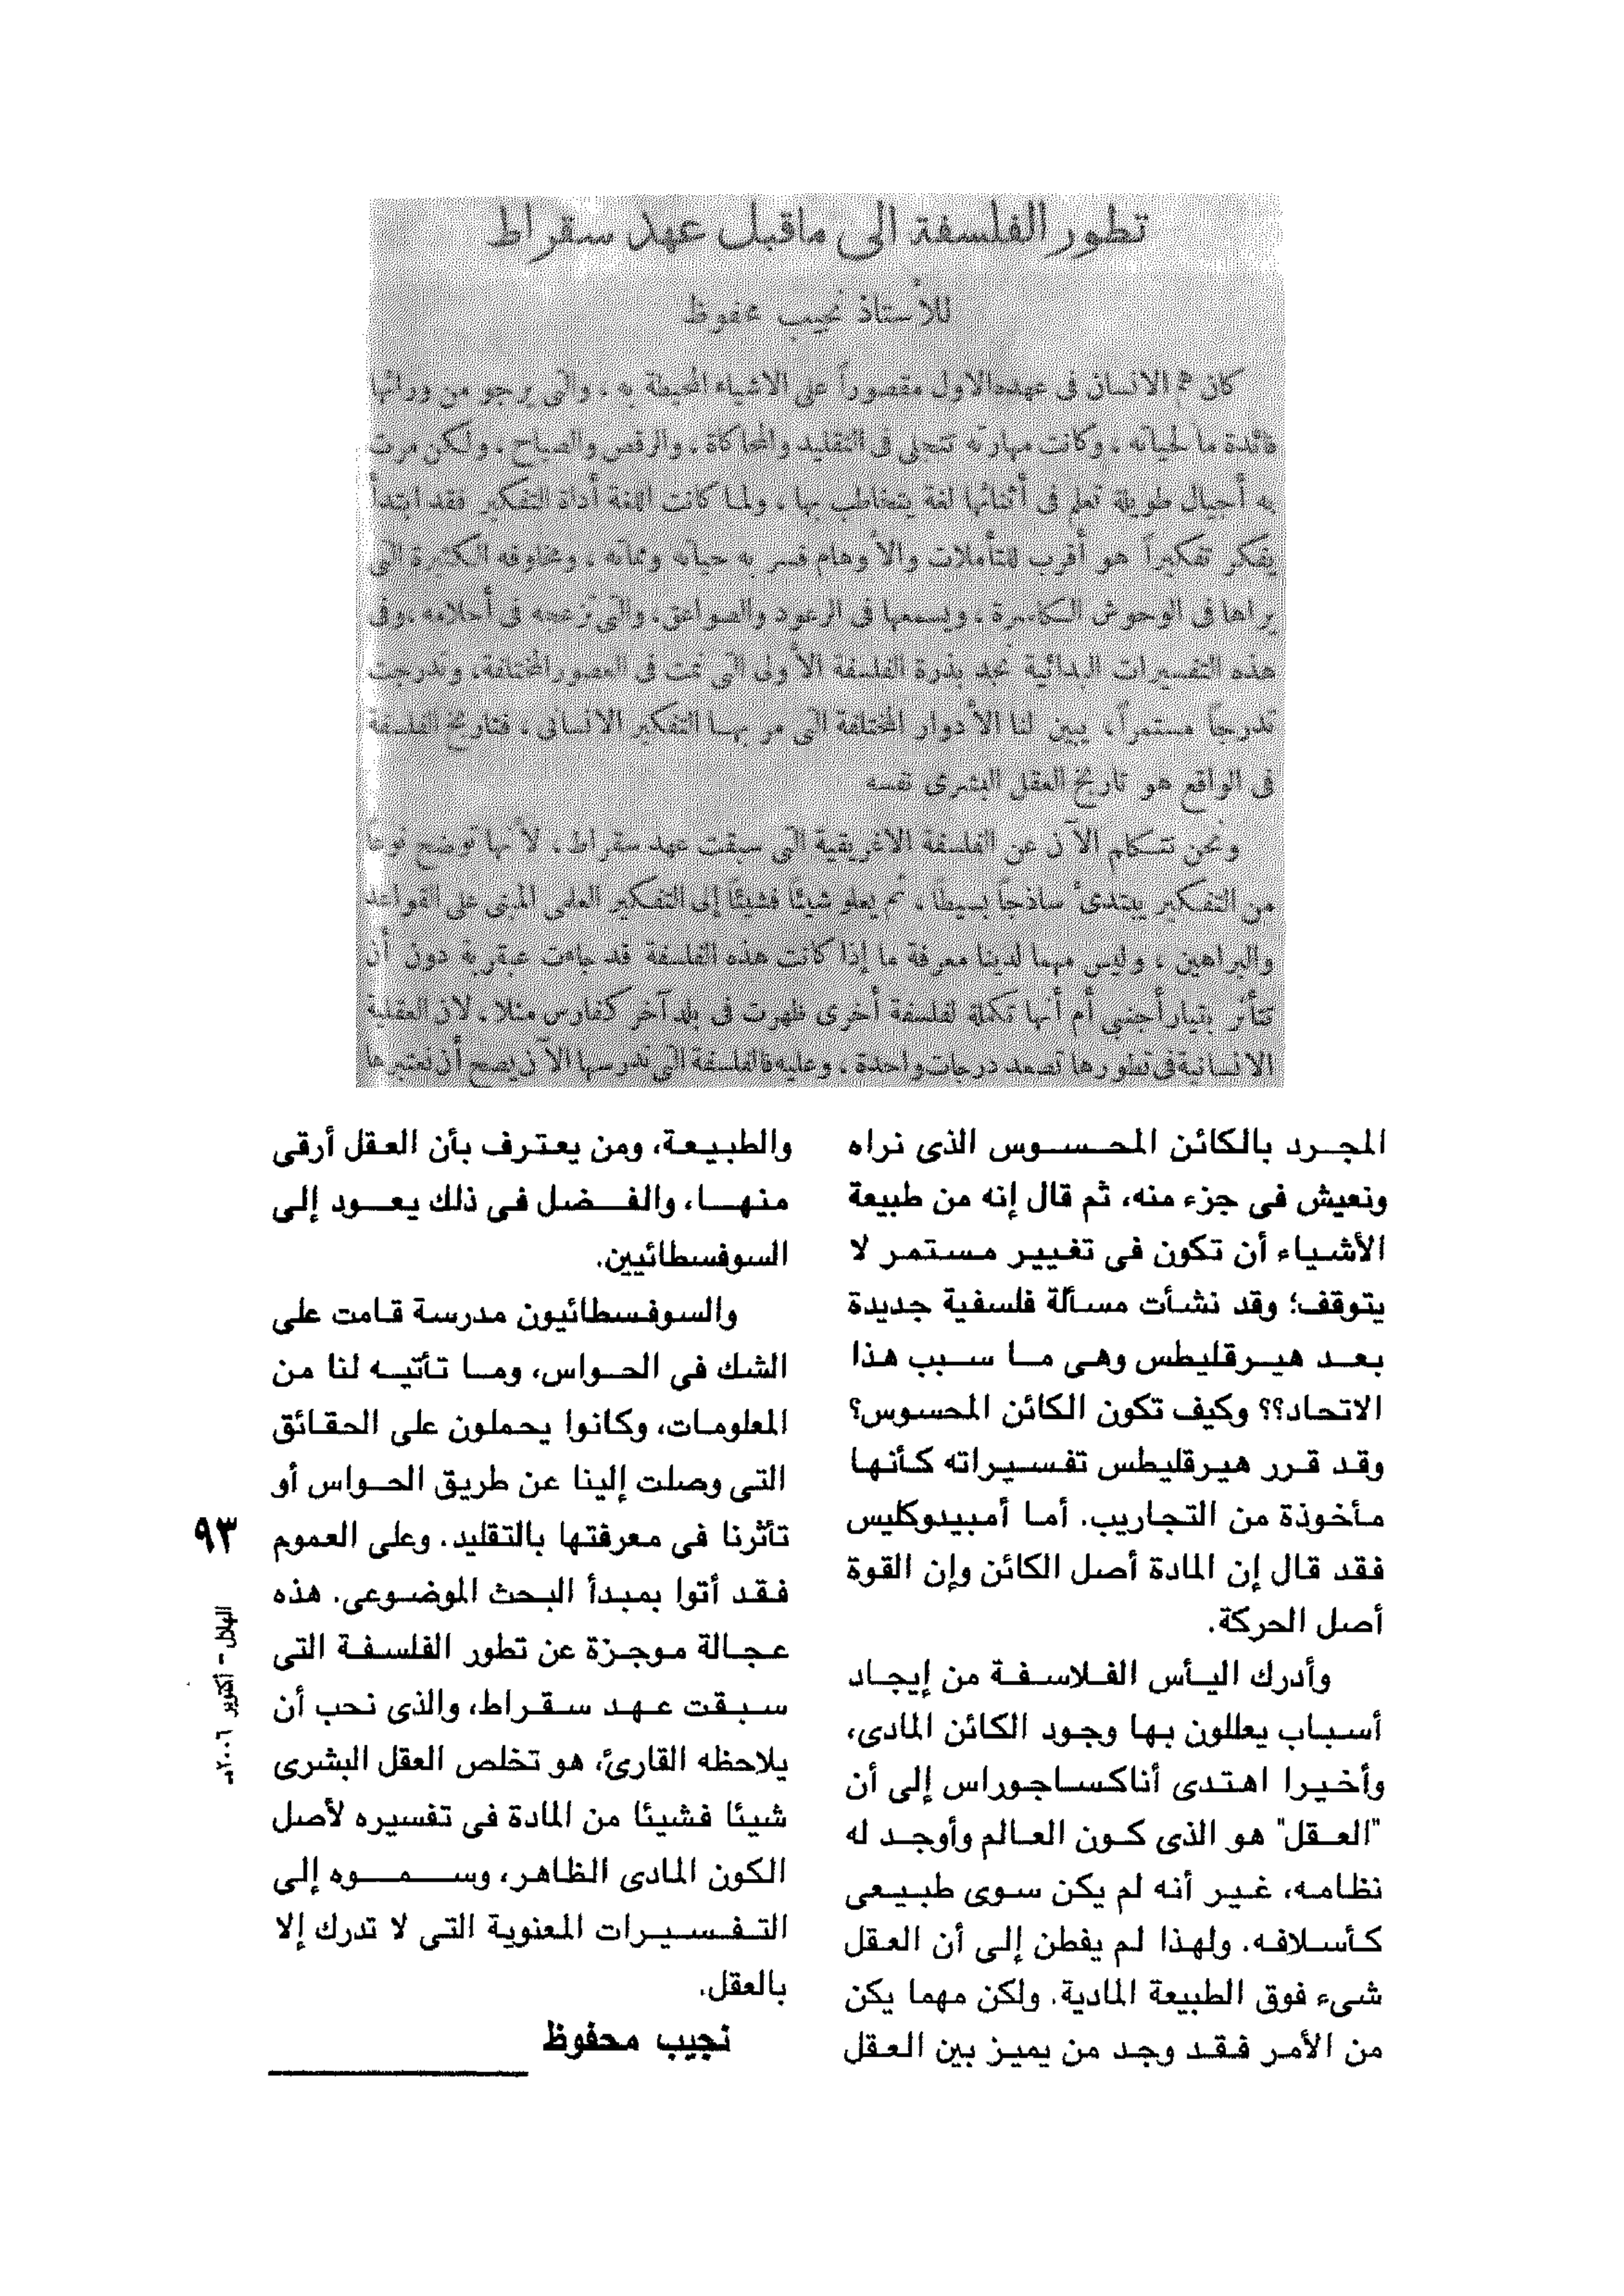 تطور الفلسفة الى ماقبل عهد سقراط
للأستاذ نجيب محفوظ
كان هم الانسان فى عهده الاول مقصوراً على الاشياء المحيطة به ، والتى يرجو من ورائها
فائدة ما لحياته ، وكانت مهارته تتجلى فى التقليد والمحاكاة ، والرقص والصياح ، ولكن مرت
به أجيال طويلة تعلم فى أثنائها لغة يتخاطب بها ، ولما كانت اللغة أداة التفكير فقد ابتدأ
يفكر تفكيراً هو أقرب للتأملات والأوهام فسر به حياته ومماته ، ومخاوفه الكثيرة التى
يراها فى الوحوش الكاسرة ، ويسمعها فى الرعود والصواعق ، والتى تزعجه فى أحلامه ، وفى
هذه التفسيرات البدائية نجد بذرة الفلسفة الأولى التى نمت فى العصور المختلفة ، وتدرجت
تدرجاً مستمراً ، يبين لنا الأدوار المختلفة التى مر بهـا التفكير الانسانى ، فتاريخ الفلسفة
فى الواقع هو تاريخ العقل البشرى نفسه
ونحن نتكلم الآن عن الفلسفة الاغريقية التى سبقت عهد سقراط ، لأنها توضح نوعا
من التفكير يبتدىء ساذجاً بسيطاً ، ثم يعلو شيئاً فشيئاً إلى التفكير العلمى المبنى على القواعد
والبراهين ، وليس مهما لدينا معرفة ما إذا كانت هذه الفلسفة قد جاءت عبقرية دون أن
تتأثر بتيار أجنبى أم أنها تكملة لفلسفة أخرى ظهرت فى بلد آخر كفارس مثلا ، لان العقلية
الانسانية فى تطورها تصعد درجات واحدة ، وعليه فالفلسفة التى ندرسها الآن يصح أن نعتبرها
المجرد بالكائن المحسوس الذى نراه
ونعيش فى جزء منه، ثم قال إنه من طبيعة
الأشياء أن تكون فى تغيير مستمر لا
يتوقف؛ وقد نشأت مسألة فلسفية جديدة
بعد هيرقليطس وهى ما سبب هذا
الاتحاد؟؟ وكيف تكون الكائن المحسوس؟
وقد قرر هيرقليطس تفسيراته كأنها
مأخوذة من التجاريب. أما أمبيدوكليس
فقد قال إن المادة أصل الكائن وإن القوة
أصل الحركة.
وأدرك اليأس الفلاسفة من إيجاد
أسباب يعللون بها وجود الكائن المادى،
وأخيرا اهتدى أناكساجوراس إلى أن
"العقل" هو الذى كون العالم وأوجد له
نظامه، غير أنه لم يكن سوى طبيعى
كأسلافه. ولهذا لم يفطن إلى أن العقل
شىء فوق الطبيعة المادية. ولكن مهما يكن
من الأمر فقد وجد من يميز بين العقل
والطبيعة، ومن يعترف بأن العقل أرقى
منها، والفضل فى ذلك يعود إلى
السوفسطائيين.
والسوفسطائيون مدرسة قامت على
الشك فى الحواس، وما تأتيه لنا من
المعلومات، وكانوا يحملون على الحقائق
التى وصلت إلينا عن طريق الحواس أو
تأثرنا فى معرفتها بالتقليد. وعلى العموم
فقد أتوا بمبدأ البحث الموضوعى. هذه
عجالة موجزة عن تطور الفلسفة التى
سبقت عهد سقراط، والذى نحب أن
يلاحظه القارئ، هو تخلص العقل البشرى
شيئا فشيئا من المادة فى تفسيره لأصل
الكون المادى الظاهر، وسموه إلى
التفسيرات المعنوية التى لا تدرك إلا
بالعقل.
نجيب محفوظ
٩٣
الهلال - أكتوبر ٢٠٠٦م